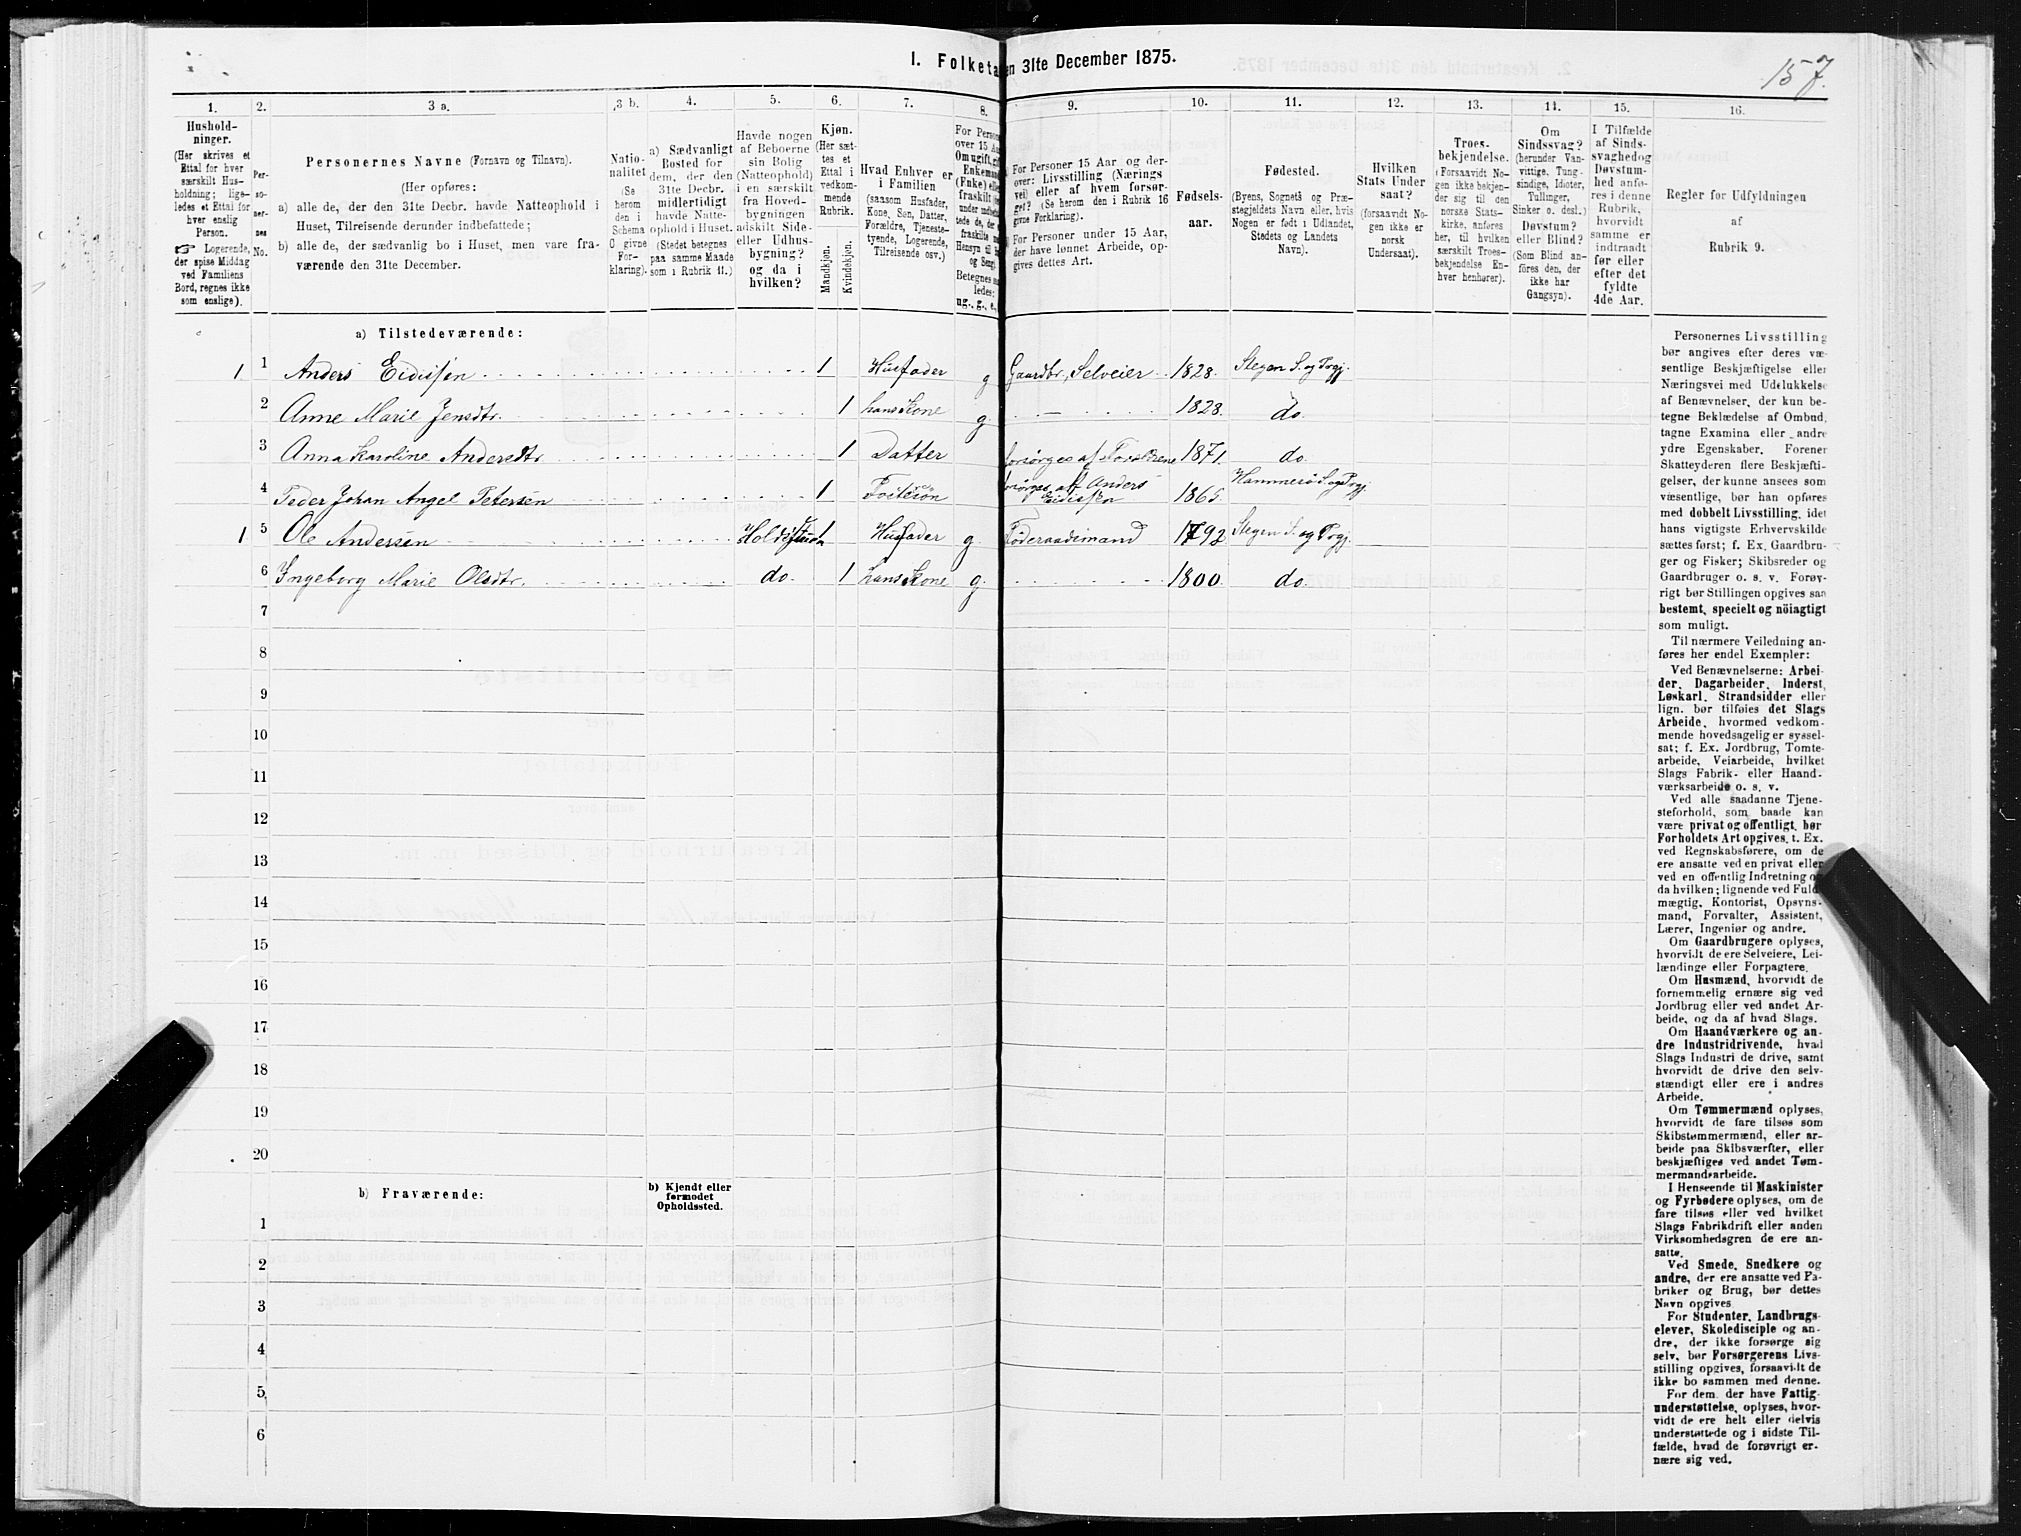 I. Folketa en 31te December 1875.
157.
1. 2. 3 a. 3 b. 4. 5. 6. 7. 8. 9. 10. 11. 12. 13. 14. 15. 16.
Hushold-
ninger.
(Her skrives et
Ettal for hver
særskilt Hus-
holdning; lige-
ledes et Ettal for
hver enslig
Person.
☞ Logerende,
der spise Middag
ved Familiens
Bord, regnes ikke
som enslige).
Per-
so-
ner-
nes
No.
Personernes Navne (Fornavn og Tilnavn).
(Her opføres:
a) alle de, der den 31te Decbr. havde Natteophold i
Huset, Tilreisende derunder indbefattede;
b) alle de, der sædvanlig bo i Huset, men vare fra-
værende den 31te December.
Natio-
nalitet
(Se
herom
den i
Schema
O givne
For-
klaring).
a) Sædvanligt
Bosted for
dem, der den
31te Decbr.
midlertidigt
havde Natte-
ophold i Huset.
(Stedet betegnes
paa samme Maade
som i Rubrik 11.)
Havde nogen
af Beboerne
sin Bolig
(Natteophold)
i en særskilt
fra Hoved-
bygningen
adskilt Side-
eller Udhus-
bygning?
og da i
hvilken?
Kjøn.
(Her sæt-
tes et
Ettal i
vedkom-
mende
Rubrik.
Mandkjøn.
Kvindekjøn.
Hvad Enhver er
i Familien
(saasom Husfader,
Kone, Søn, Datter,
Forældre, Tjeneste-
tyende, Logerende,
Tilreisende osv.)
For Person
over 15 Aa
Om ugift, gif
Enkeman
(Enke) elle
fraskilt
under indbe
tede de, de
fraskilte
Hensyn til
og Seng
Betegnes
ledes:
ug., g., e,
For Personer 15 Aar og der-
over: Livsstilling (Nærings
vei) eller af hvem forsør-
get? (Se herom den i Rubrik 16
givne Forklaring).
For Personer under 15 Aar,
der have lønnet Arbeide, op-
gives dettes Art.
Fødsels-
aar.
Fødested.
(Byens, Sognets og Præ-
stegjeldets Navn eller, hvis
Nogen er født i Udlandet,
Stedets og Landets
Navn).
Hvilken
Stats Under
saat?
(forsaavidt No-
gen ikke er
norsk
Undersaat).
Troes-
bekjendelse.
(Forsaavidt No-
gen ikke bekjen-
der sig til den
norske Stats-
kirke, anføres
her, til hvilken
særskilt Troes-
bekjendelse En-
hver henhører).
Om
Sindssvag?
(herunder Van-
vittige, Tung-
sindige, Idioter,
Tullinger,
Sinker o. desl.)
Døvstum?
eller Blind?
(Som Blind an-
føres den, der
ikke har
Gangsyn).
I Tilfælde
af Sinds-
svaghed og
Døvstum-
hed anfø-
res i denne
Rubrik,
hvorvidt
samme er
indtraadt
før eller
efter det
fyldte
4de Aar.
Regler for Udfyldningen
af
Rubrik 9.
a) Tilstedeværende:
1 1 Anders Eidissen 1 Husfader g Gaardbr, Selveier 1828. Stegen S. og Prgj.
2 Anne Marie Jensdtr. 1 hans Kone g — 1828. do.
3 Anna Karoline Andersdtr 1 Datter forsørges af Forældrene 1871. do.
4 Peder Johan Angel Petersen 1 Fostersøn forsørges af Anders Eidissen 1865. Hammerø S. og Prgj.
1 5 Ole Andersen Holdsstuen 1 Husfader g. Føderaadsmand 1792 Stegen S. og Prgj.
6 Ingeborg Marie Olsdtr. do. 1 hans Kone g. 1800. do.
7
8
9
10
11
12
13
14
15
16
17
18
19
20
b) Fraværende:
b) Kjendt eller
formodet
Opholdssted.
1
2
3
4
5
6
Personernes Livsstilling
bør angives efter deres væ-
sentlige Beskjæftigelse eller
Næringsvei med Udelukkelse
af Benævnelser, der kun be-
tegne Beklædelse af Ombud,
tagne Examina eller andre
ydre Egenskaber. Forener
Skatteyderen flere Beskjæfti-
gelser, der kunne ansees som
væsentlige, bør han opføres
med dobbelt Livsstilling, idet
hans vigtigste Erhvervskilde
sættes først; f. Ex. Gaardbru-
ger og Fisker; Skibsreder og
Gaardbruger o. s. v. Forøv-
rigt bør Stillingen opgives saa
bestemt, specielt og nöiagtigt
som muligt.
Til nærmere Veiledning an-
føres her endel Exempler:
Ved Benævnelserne: Arbei-
der, Dagarbeider, Inderst,
Løskarl, Strandsidder eller
lign. bør tilføies det Slags
Arbeide, hvormed vedkom-
mende hovedsagelig er syssel-
sat; f. Ex. Jordbrug, Tomte-
arbeide, Veiarbeide, hvilket
Slags Fabrik- eller Haand-
værksarbeide o. s. v.
Ved alle saadanne Tjene-
steforhold, som baade kan
være privat og offentligt, bør
Forholdets Art opgives, t. Ex.
ved Regnskabsførere, om de
ere ansatte ved en privat eller
ved en offentlig Indretning og
da hvilken; lignende ved Fuld-
mægtig, Kontorist, Opsyns-
mand, Forvalter, Assistent,
Lærer, Ingeniør og andre.
Om Gaardbrugere oplyses,
hvorvidt de ere Selveiere, Lei-
lændinge eller Forpagtere.
Om Husmænd, hvorvidt de
fornemmelig ernære sig ved
Jordbrug eller ved andet Ar-
beide, og da af hvad Slags.
Om Haandværkere og an-
dre Industridrivende, hvad
Slags Industri de drive, samt
hvorvidt de drive den selv-
stændigt eller ere i andres
Arbeide.
Om Tømmermænd oplyses,
hvorvidt de fare tilsøs som
Skibstømmermænd, eller ar-
beide paa Skibsværfter, eller
beskjæftiges ved andet Tøm-
mermandsarbeide.
I Henseende til Maskinister
og Fyrbødere oplyses, om de
fare tilsøs eller ved hvilket
Slags Fabrikdrift eller anden
Virksomhedsgren de ere an-
satte.
Ved Smede, Snedkere og
andre, der ere ansatte ved Fa-
briker og Brug, bør dettes
Navn opgives.
For Studenter, Landbrugs-
elever, Skoledisciple og an-
dre, der ikke forsørge sig
selv, bør Forsørgerens Livs-
stilling opgives, forsaavidt de
ikke bo sammen med denne.
For dem, der have Fattig-
understøttelse, oplyses, hvor-
vidt de ere helt eller delvis
understøttede og i sidste Til-
fælde, hvad de forøvrigt er-
nære sig ved.